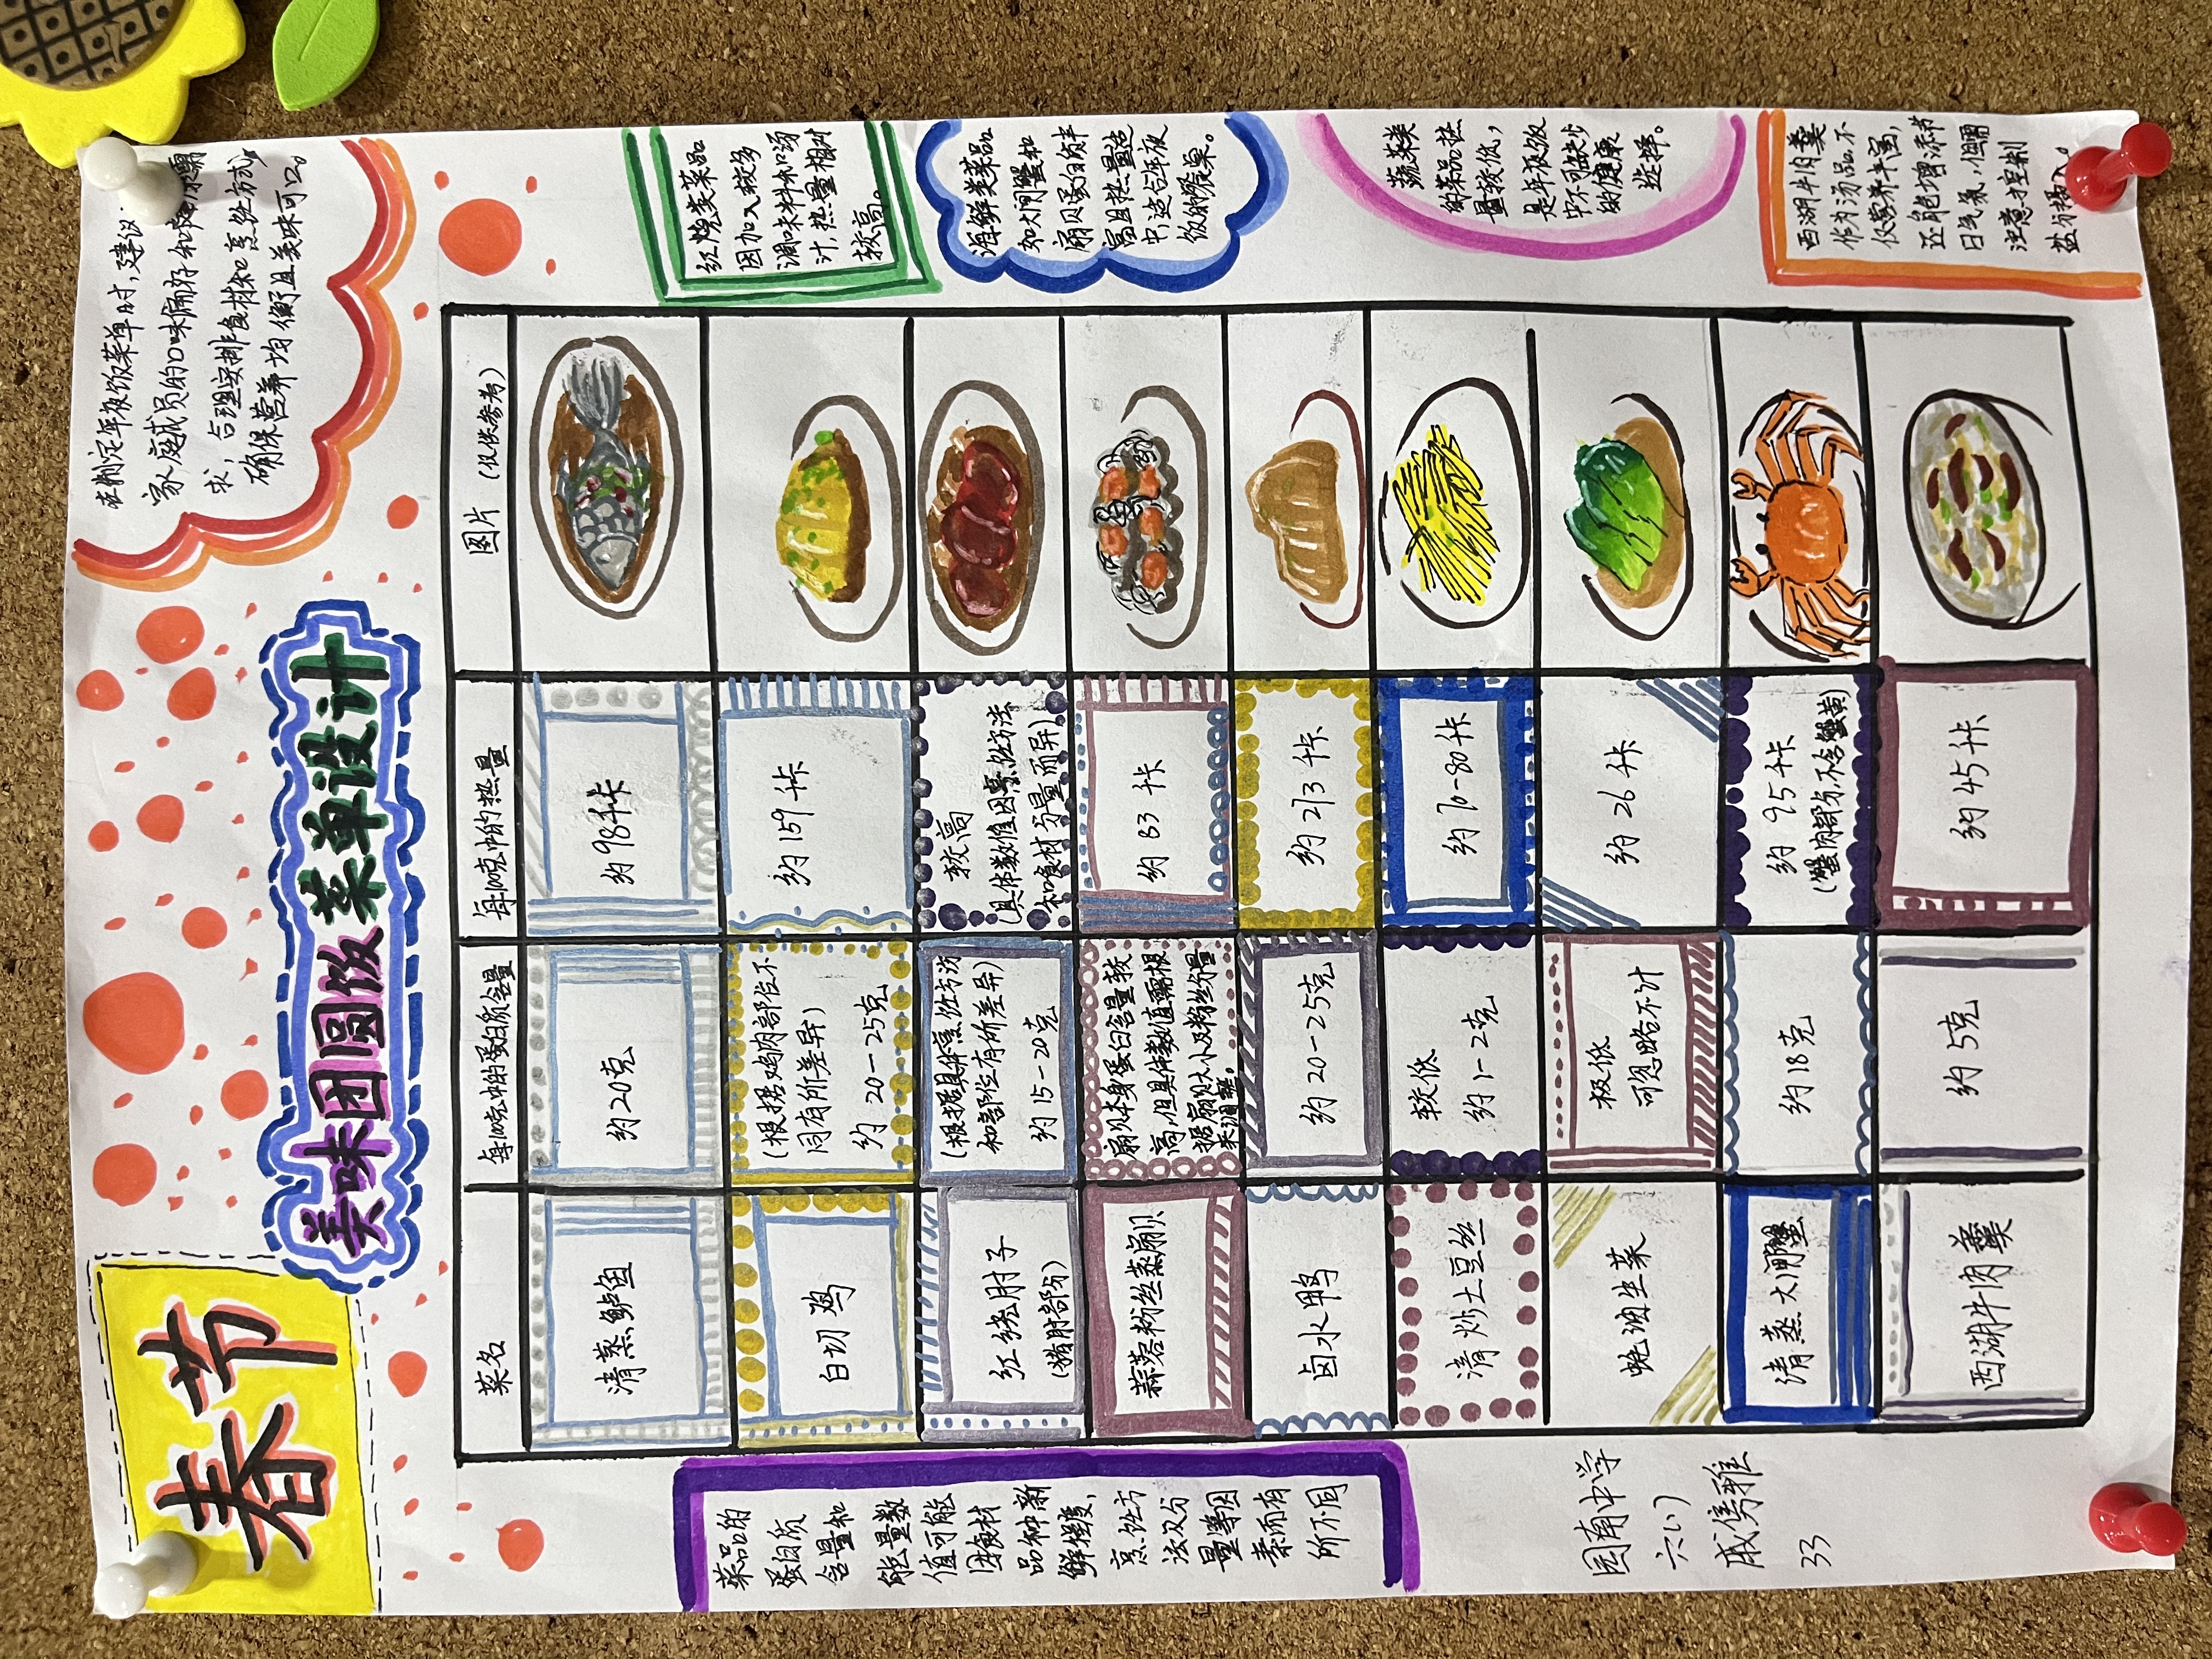 春节
美味团圆饭菜单设计
在制定年夜饭菜单时,建议
家庭成员的口味偏好和
求,合理安排食材和烹饪方式,
确保营养均衡且美味可口。
菜名
每100克中的蛋白质含量
每100克中的热量
图片(仅供参考)
清蒸鲈鱼
约20克
约98千卡
白切鸡
(根据鸡肉部位不
同有所差异)
约 20-25克
约159千卡
红烧肘子
(猪肘部份)
(根据具体烹饪方法
和部位有所差异)
约15-20克
较高
(具体数值因烹饪方法
和食材分量而异)
蒜蓉粉丝蒸扇贝
扇贝本身蛋白含量较
高,但具体数值需根
据扇贝大小及粉丝分量
来调整。
约 83 千卡
卤水鸭
约20-25克
约213千卡
清炒土豆丝
较低
约1-2克
约70-80千卡
蚝油生菜
极低
可忽略不计
约26千卡
清蒸大闸蟹
约18克
约 95千卡
(蟹肉部分,不含蟹黄)
西湖牛肉羹
约5克
约45千卡
红烧类菜品
因加入较多
调味料和汤
汁,热量相对
较高。
海鲜类菜品
如大闸蟹和
扇贝蛋白质丰
富且热量适
中,适合年夜
饭的餐桌。
蔬菜类
的菜品热
量较低,
是年夜饭
中不可缺少
的健康
选择。
西湖牛肉羹
作为汤品不
仅营养丰富,
还能增添节
日气氛,但需
注意控制
盐分摄入。
菜品的
蛋白质
含量和
能量数
值可能
因食材
品种、新
鲜程度,
烹饪方
法及分
量等因
素而有
所不同
园南中学
六(1)
戚隽雅
33